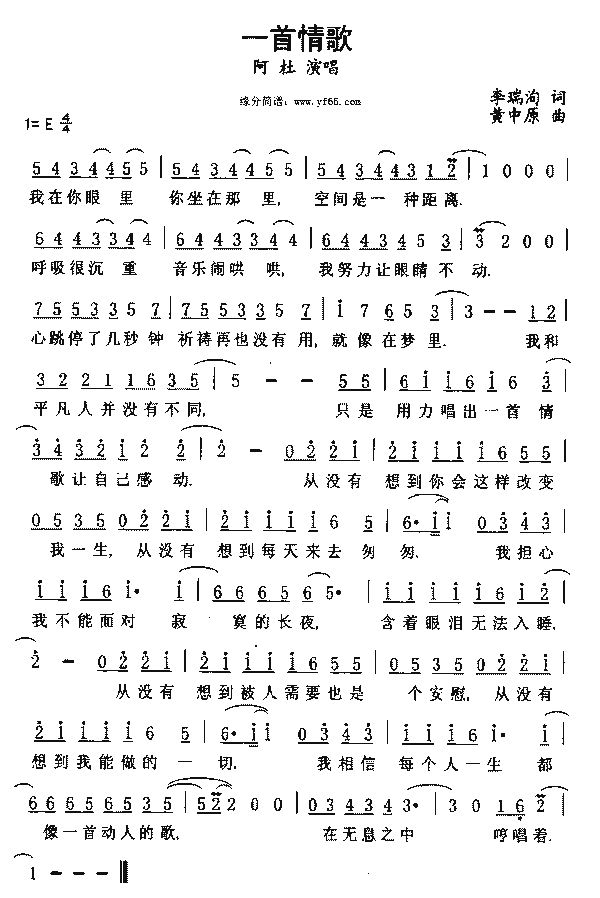 一首情歌
阿 杜 演唱
缘分简谱：www.yf66.com
李瑞洵 词
1= E 4/4
黄中原 曲
5 4 3 4 4 5 5 | 5 4 3 4 4 5 5 | 5 4 3 4 4 3 1 2 | 1 0 0 0
我在你眼 里 你坐在那 里, 空间是一 种距离.
6 4 4 3 3 4 4 | 6 4 4 3 3 4 4 | 6 4 4 3 4 5 3 | 3 2 0 0
呼吸很沉 重 音乐闹哄 哄, 我努力让眼睛 不 动.
7 5 5 3 3 5 7 | 7 5 5 3 3 5 7 | 1 7 6 5 3 | 3 - - 1 2
心跳停了几秒 钟 祈祷再也没有 用, 就 像 在梦 里. 我和
3 2 2 1 1 6 3 5 | 5 - - 5 5 | 6 1 1 6 1 6 3
平凡人并没有不同, 只是 用力唱出一首 情
3 4 3 2 1 2 2 | 2 - 0 2 2 1 | 2 1 1 1 1 6 5 5
歌让自己感 动. 从没有 想到你会这样改变
0 5 3 5 0 2 2 1 | 2 1 1 1 1 6 5 | 6· 1 1 0 3 4 3
我一生, 从没有 想到每天来去 匆 匆. 我担心
1 1 1 6 1· 1 | 6 6 6 5 6 5· | 1 1 1 1 1 6 1 2
我不能面对 寂 寞的长夜, 含着眼泪无法入睡,
2 - 0 2 2 1 | 2 1 1 1 1 6 5 5 | 0 5 3 5 0 2 2 1
从没有 想到被人需要也是 个安慰, 从没有
2 1 1 1 1 6 5 | 6· 1 1 0 3 4 3 | 1 1 1 6 1 1
想到我能做的 一 切. 我相信 每个人一生 都
6 6 6 5 6 5 3 5 | 5 2 2 0 0 | 0 3 4 3 4 3· | 3 0 1 6 2
像一首动人的歌. 在无息之中 哼唱着.
1 - - -